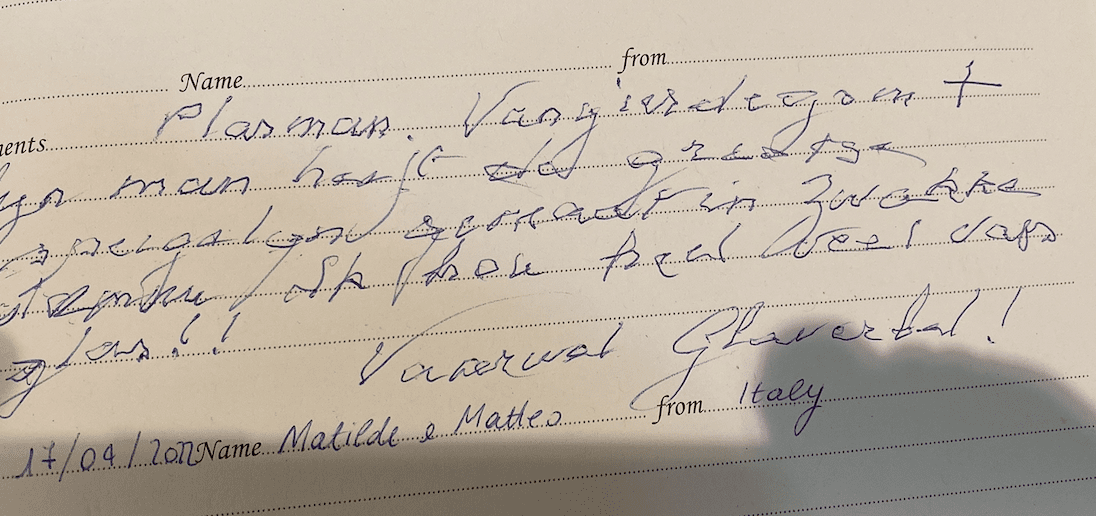 Name from
Plasman. Vangierdegom +
ments
man heeft de grootse
spiegelen gemaakt in Zwakke
Ik hou heel veel van
glas!!
Vaarwel Glaverbel!
17/04/2022 Name Matilde e Matteo from Italy